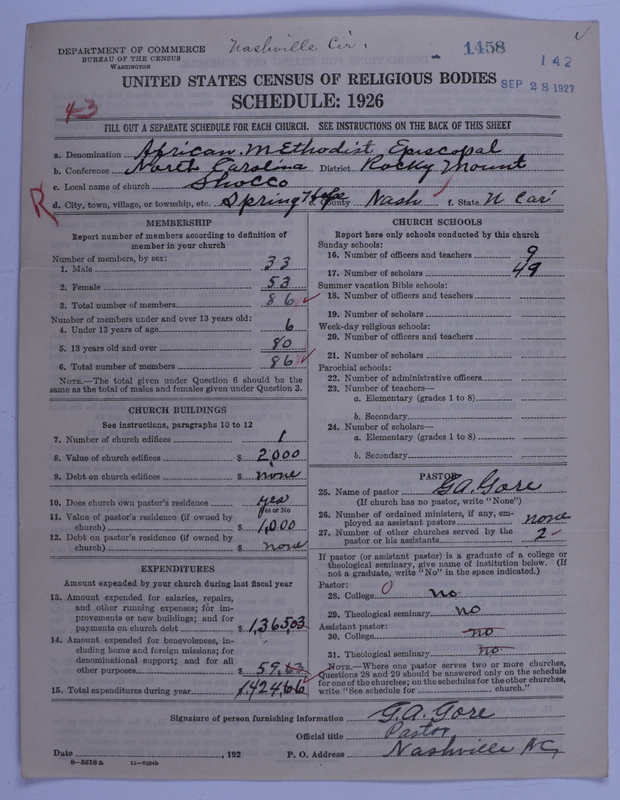 DEPARTMENT OF COMMERCE
BUREAU OF THE CENSUS
WASHINGTON
Nashville Cir.
1458
142
SEP 28 1927
4-3
UNITED STATES CENSUS OF RELIGIOUS BODIES
SCHEDULE: 1926
FILL OUT A SEPARATE SCHEDULE FOR EACH CHURCH. SEE INSTRUCTIONS ON THE BACK OF THIS SHEET
a. Denomination African Methodist Episcopal
b. Conference North Carolina District Rocky Mount
c. Local name of church Shocco
R
d. City, town, village, or township, etc. Spring Hope e. County Nash f. State N Car
MEMBERSHIP
Report number of members according to definition of
member in your church
Number of members, by sex:
1. Male 33
2. Female 53
3. Total number of members 86
Number of members under and over 13 years old:
4. Under 13 years of age 6
5. 13 years old and over 80
6. Total number of members 86
NOTE.—The total given under Question 6 should be the
same as the total of males and females given under Question 3.
CHURCH BUILDINGS
See instructions, paragraphs 10 to 12
7. Number of church edifices 1
8. Value of church edifices $ 2,000
9. Debt on church edifices $ none
10. Does church own pastor's residence yes
Yes or No
11. Value of pastor's residence (if owned by
church) $ 1,000
12. Debt on pastor's residence (if owned by
church) $ none
EXPENDITURES
Amount expended by your church during last fiscal year
13. Amount expended for salaries, repairs,
and other running expenses; for im-
provements or new buildings; and for
payments on church debt $ 1,365.03
14. Amount expended for benevolences, in-
cluding home and foreign missions; for
denominational support; and for all
other purposes $ 59.63
15. Total expenditures during year $ 1424.66
CHURCH SCHOOLS
Report here only schools conducted by this church
Sunday schools:
16. Number of officers and teachers 9
17. Number of scholars 49
Summer vacation Bible schools:
18. Number of officers and teachers
19. Number of scholars
Week-day religious schools:
20. Number of officers and teachers
21. Number of scholars
Parochial schools:
22. Number of administrative officers
23. Number of teachers—
a. Elementary (grades 1 to 8)
b. Secondary
24. Number of scholars—
a. Elementary (grades 1 to 8)
b. Secondary
PASTOR
25. Name of pastor G.A. Gore
(If church has no pastor, write "None")
26. Number of ordained ministers, if any, em-
ployed as assistant pastors none
27. Number of other churches served by the
pastor or his assistants 2
If pastor (or assistant pastor) is a graduate of a college or
theological seminary, give name of institution below. (If
not a graduate, write "No" in the space indicated.)
Pastor:
28. College 0 no
29. Theological seminary no
Assistant pastor:
30. College no
31. Theological seminary no
NOTE.—Where one pastor serves two or more churches,
Questions 28 and 29 should be answered only on the schedule
for one of the churches; on the schedules for the other churches,
write "See schedule for church."
Signature of person furnishing information G.A. Gore
Official title Pastor
Date , 192 P. O. Address Nashville N.C.
8-5518a 11-9204b